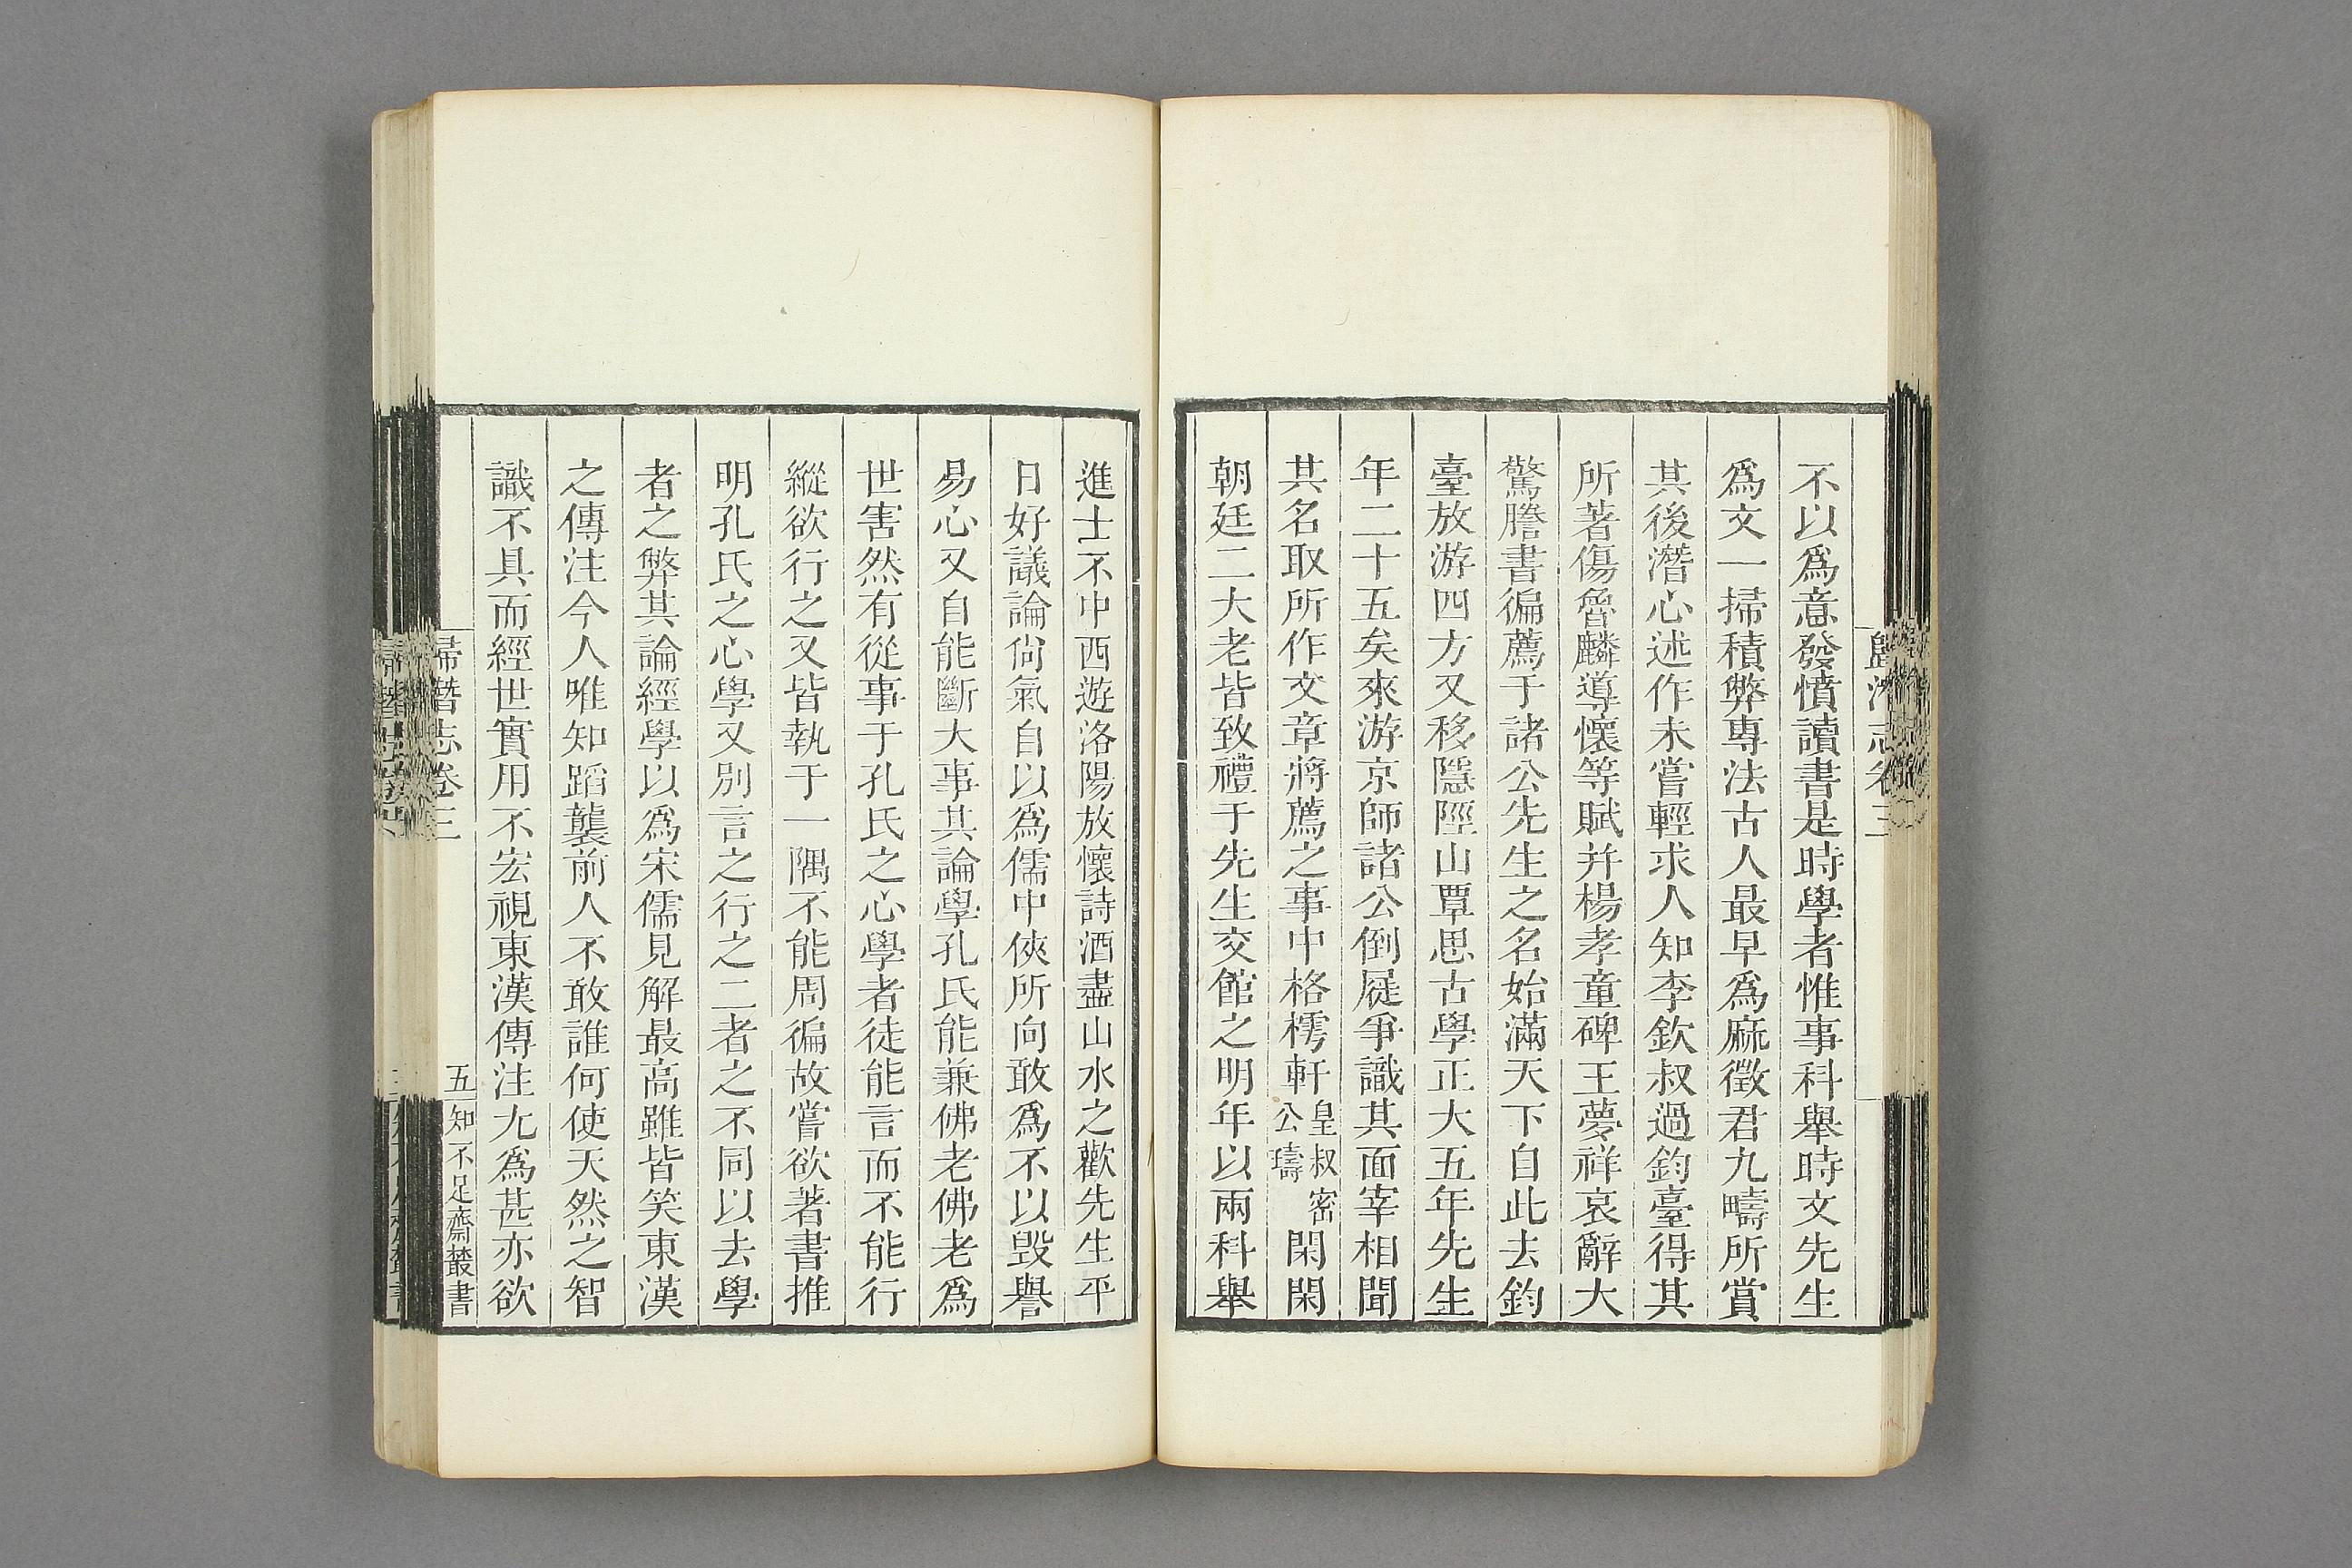 歸潛志卷三
不以爲意發憤讀書是時學者惟事科舉時文先生
爲文一掃積弊專法古人最早爲麻徵君九疇所賞
其後潛心述作未嘗輕求人知李欽叔過鈞臺得其
所著傷魯麟導懷等賦幷楊孝童碑王夢祥哀辭大
驚謄書徧薦于諸公先生之名始滿天下自此去鈞
臺放游四方又移隱陘山覃思古學正大五年先生
年二十五矣來游京師諸公倒屣爭識其面宰相聞
其名取所作文章將薦之事中格樗軒皇叔密公璹閑閑
朝廷二大老皆致禮于先生交館之明年以兩科舉
進士不中西遊洛陽放懷詩酒盡山水之歡先生平
日好議論尙氣自以爲儒中俠所向敢爲不以毀譽
易心又自能斷大事其論學孔氏能兼佛老佛老爲
世害然有從事于孔氏之心學者徒能言而不能行
縱欲行之又皆執于一隅不能周徧故嘗欲著書推
明孔氏之心學又別言之行之二者之不同以去學
者之弊其論經學以爲宋儒見解最高雖皆笑東漢
之傳注今人唯知蹈襲前人不敢誰何使天然之智
識不具而經世實用不宏視東漢傳注尤爲甚亦欲
歸潛志卷三 五 知不足齋叢書